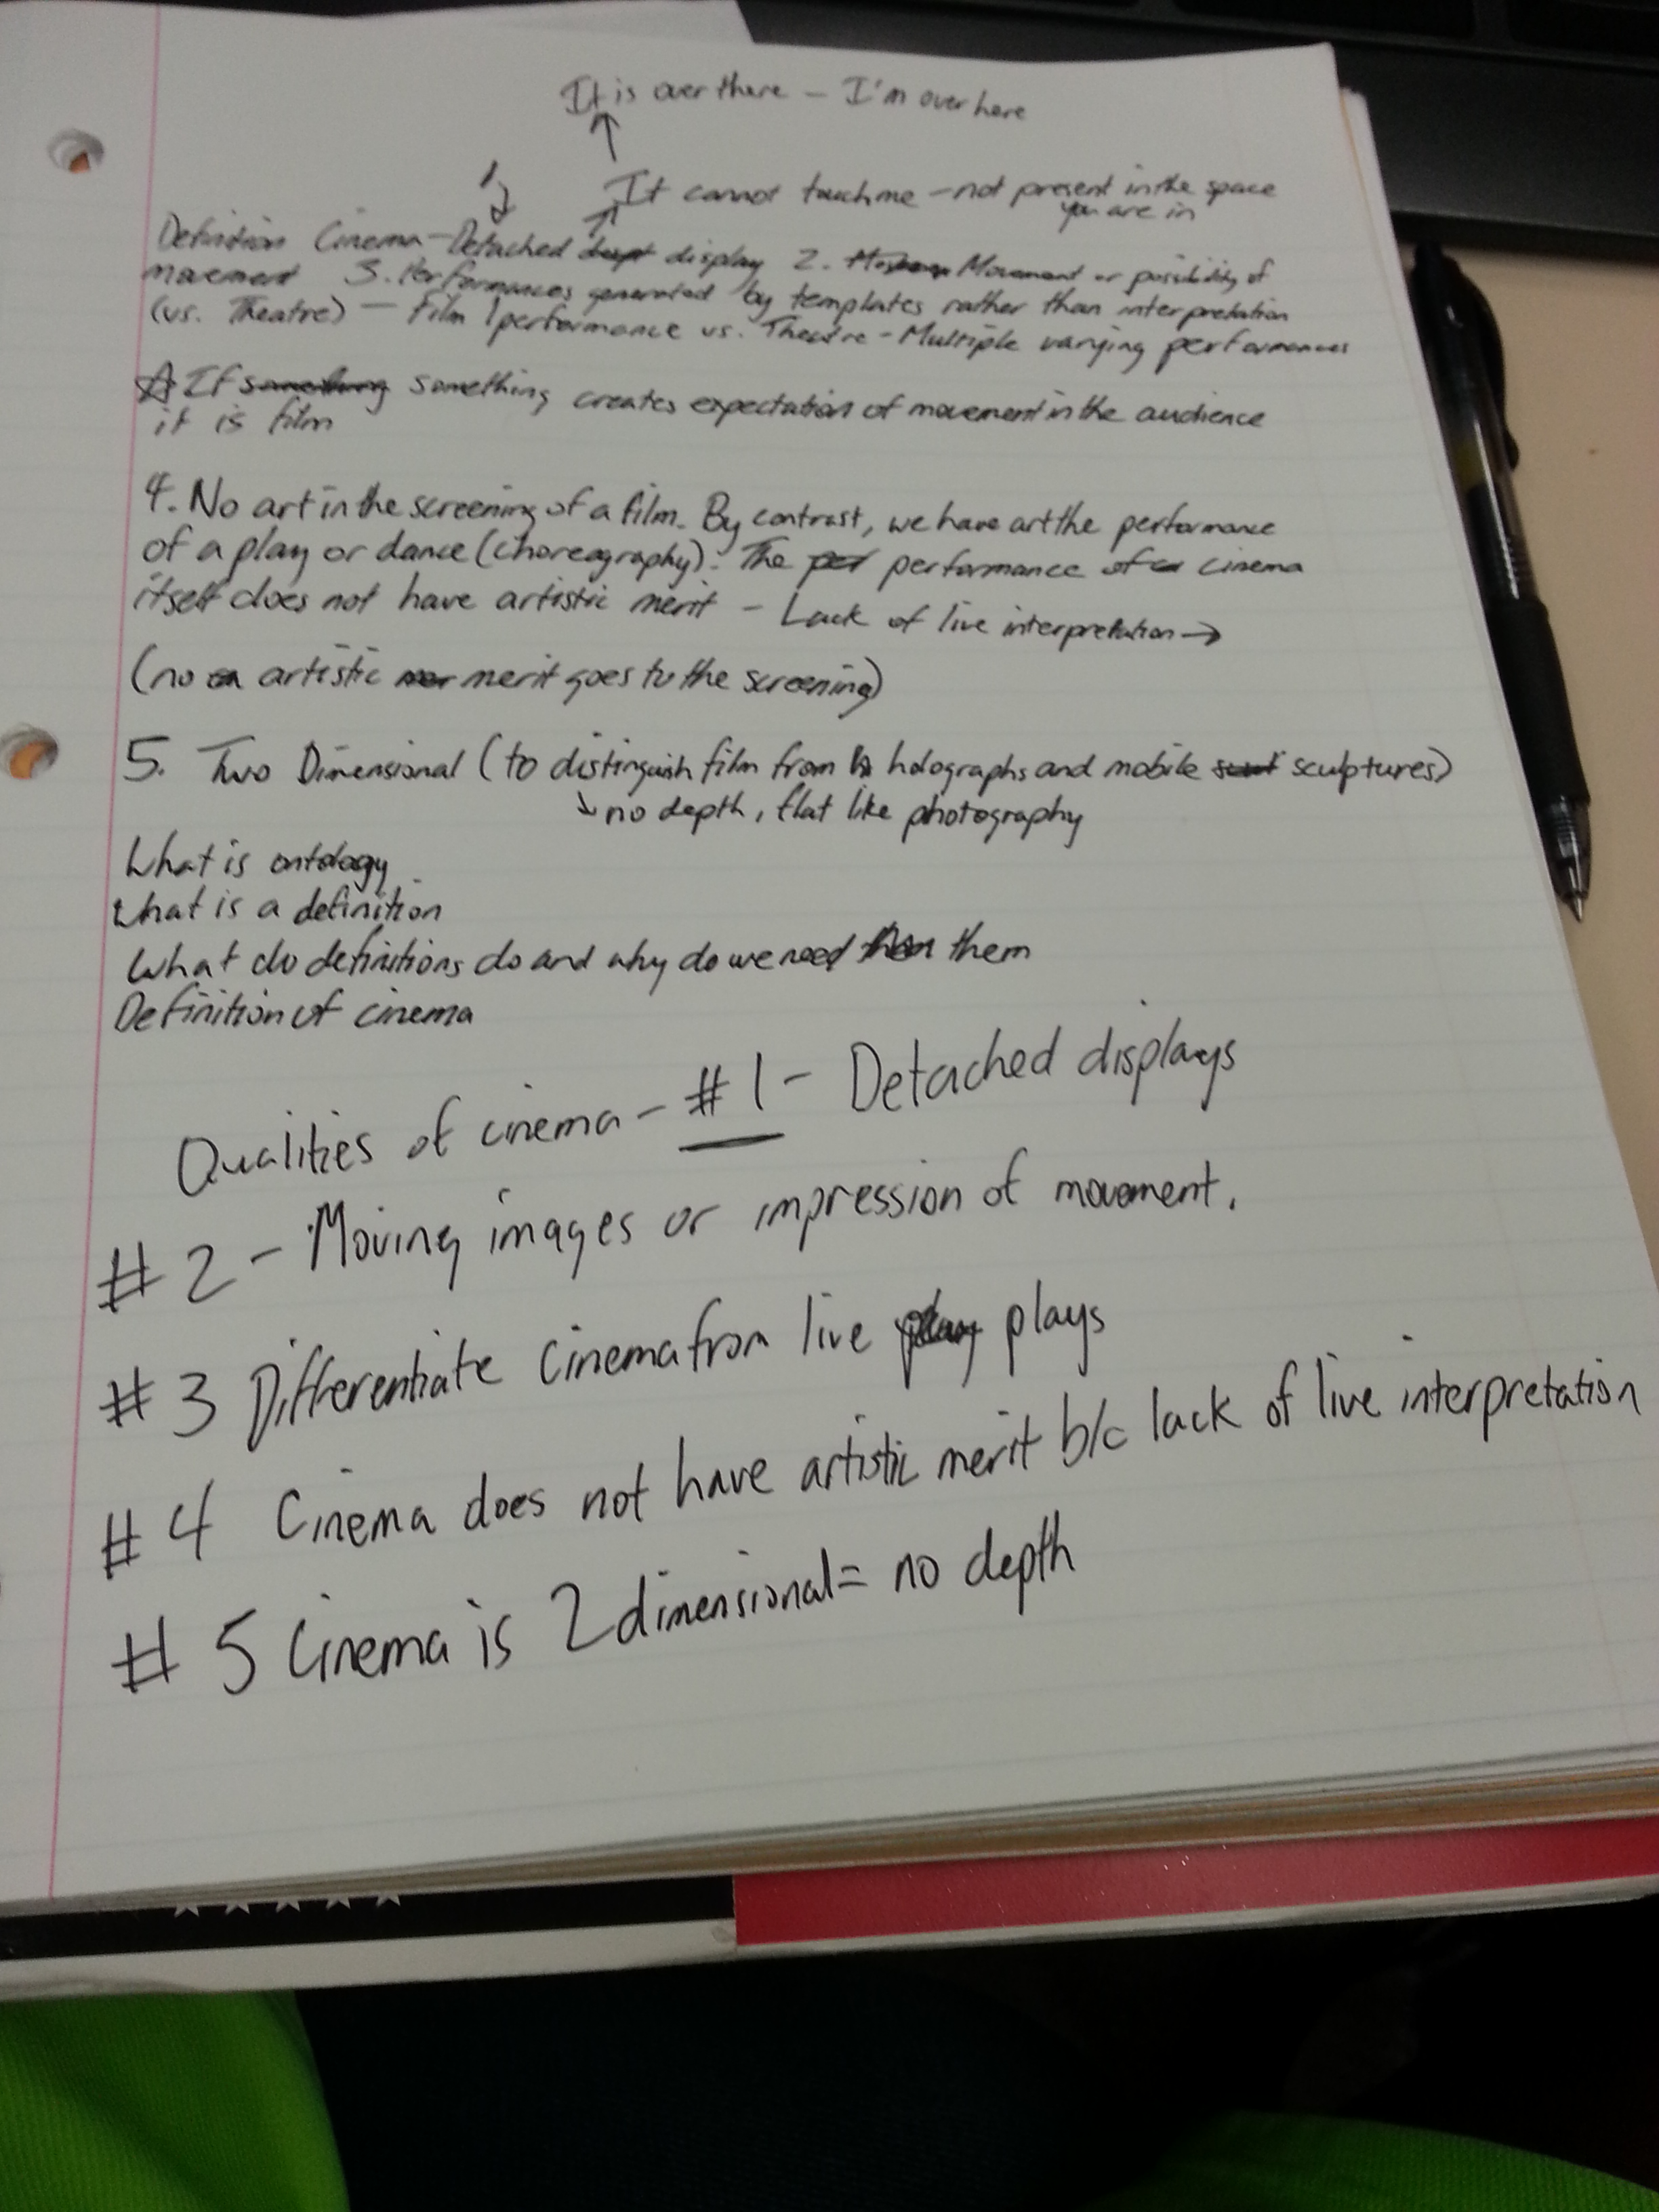 It is over there - I'm over here
↑
1
It cannot touch me - not present in the space
you are in
Definition Cinema - Detached display 2. Movement or possibility of
movement 3. Performances generated by templates rather than interpretation
(vs. Theatre) - Film 1 performance vs. Theatre - Multiple varying performances
☆ If something something creates expectation of movement in the audience
it is film
4. No art in the screening of a film. By contrast, we have art the performance
of a play or dance (choreography). The per performance of a cinema
itself does not have artistic merit - Lack of live interpretation →
(no artistic merit goes to the screening)
5. Two Dimensional (to distinguish film from holographs and mobile sculptures)
↳ no depth, flat like photography
What is ontology
What is a definition
What do definitions do and why do we need them them
Definition of cinema
Qualities of cinema - #1 - Detached displays
#2 - Moving images or impression of movement.
#3 Differentiate Cinema from live play plays
#4 Cinema does not have artistic merit b/c lack of live interpretation
#5 Cinema is 2 dimensional = no depth